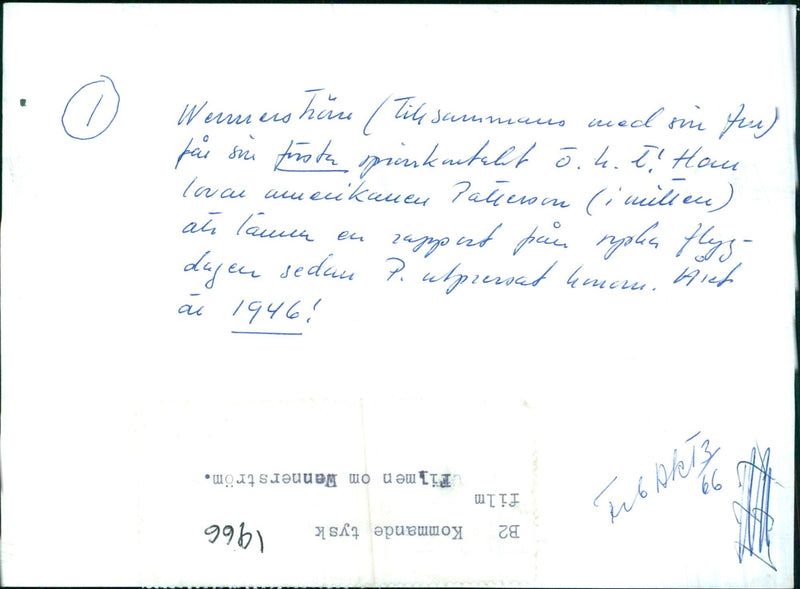 1
Wennerström (Tillsammans med sin fru)
får sin första spionkontakt ö. h. t! Han
lovar amerikanen Patterson (i mitten)
att lämna en rapport från ryska flyg-
dagen sedan P. utpressat honom. Året
är 1946!
B2 Kommande tysk
film
Filmen om Wennerström.
1966
66